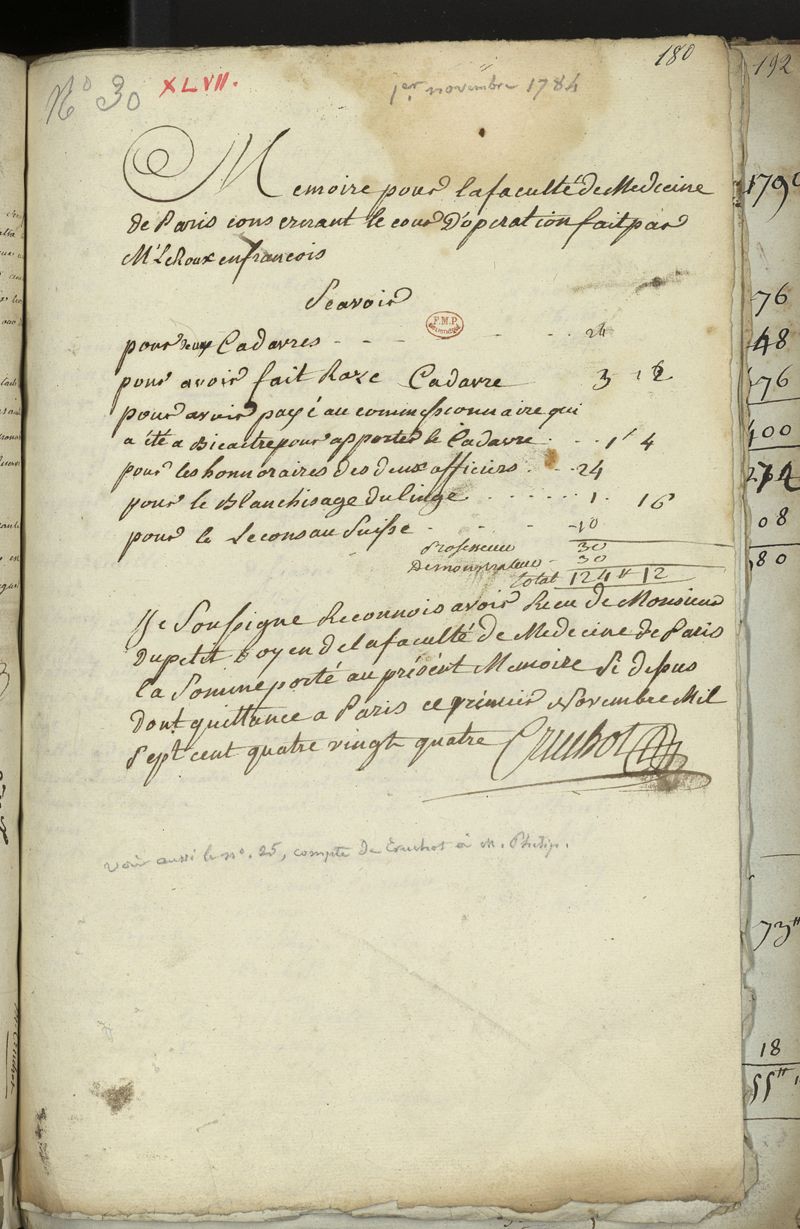 180
No 30 XLVII. 1er novembre 1784
Memoire pour lafaculté de Medecine
de Paris conscernant le cour D'operation fait par
Mr LeRoux en francois
Scavoir
F.M.P.
pour deux Cadavres - - - - - 24
pour avoir fait Raze Cadavre 3 12
pour avoir payé au commissconnaire qui
a été a Bicaitre pour apporter le Cadavre - - - 1 4
pour les honnoraires des deux officiers - - - 24
pour le Blanchisage du linge - - - - - - 1 - 16
pour le Lecons au Suisse - - - - 10
Professeur 30
Demonstrateur - 30
total 124 tt 12
Je Soussigne Reconnois avoir Recu de Monsieur
Dupetit Doyen de lafaculté de Medecine de Paris
la Somme porté au présent Memoire Si dessus
dont quittance a Paris ce premier Novembre Mil
Sept cent quatre vingt quatre Cruchot
voir aussi le no. 25, compte de Cruchot à M. Philip.
192
179
76
48
76
400
274
08
80
73tt
18
55tt